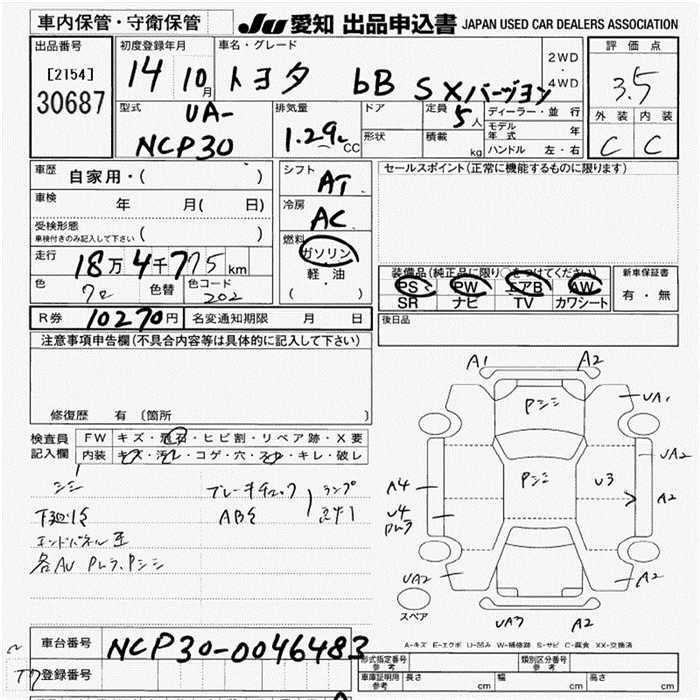 車内保管・守衛保管
JU 愛知 出品申込書 JAPAN USED CAR DEALERS ASSOCIATION
出品番号
[2154]
30687
初度登録年月
14 10月
車名・グレード
トヨタ bB S Xバージョン
2WD
・
4WD
評価点
3.5
外装 内装
C C
型式
UA-
NCP30
排気量
1.29 CC
ドア
形状
定員
5人
積載
kg
ディーラー・並行
モデル年式 年
ハンドル 左・右
車歴
自家用・( )
車検
年 月( 日)
受検形態
車検付きのみ記入して下さい ( )
走行
18万4千775km
色
色替
色コード
202
シフト
AT
冷房
AC
燃料
ガソリン
・
軽・油
( ・ )
セールスポイント(正常に機能するものに限ります)
装備品(純正品に限り○をつけてください)
PS PW エアB AW
SR ナビ TV カワシート
新車保証書
有・無
R券 10270円 名変通知期限 月 日
後日品
注意事項申告欄(不具合内容等は具体的に記入して下さい)
修復歴 有 (箇所
検査員
記入欄
FW キズ・飛石・ヒビ割・リペア跡・X要
内装 キズ・汚レ・コゲ・穴・スレ・キレ・破レ
シミ
ブレーキチェック ランプ
ABS
A1 A2
Pシミ
UA1
UA2
Pシミ
U3
A2
A4
U4
UA2
A2
UA3 A2
スペア
A-キズ E-エクボ U-凹み W-補修跡 S-サビ C-腐食 XX-交換済
車台番号 NCP30-0046483
登録番号
形式指定番号
参考
類別区分番号
参考
車庫証明用
参考
長さ cm 幅 cm 高さ cm